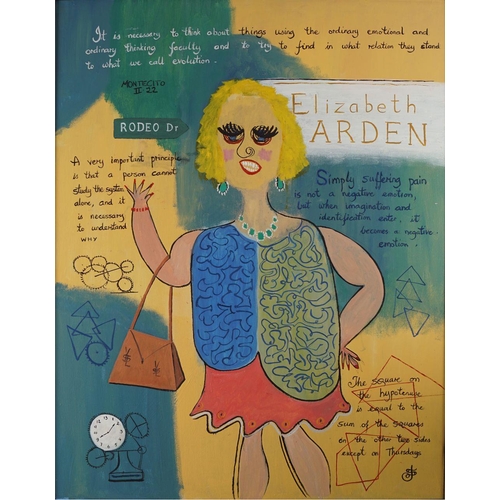 It is necessary to think about things using the ordinary emotional and
ordinary thinking faculty and to try to find in what relation they stand
to what we call evolution.
MONTECITO
II 22
Elizabeth
ARDEN
RODEO Dr
A very important principle
is that a person cannot
study the system
alone, and it
is necessary
to understand
WHY
Simply suffering pain
is not a negative emotion,
but when imagination and
identification enter, it
becomes a negative
emotion.
The square on
the hypotenuse
is equal to the
sum of the squares
on the other two sides
except on Thursdays